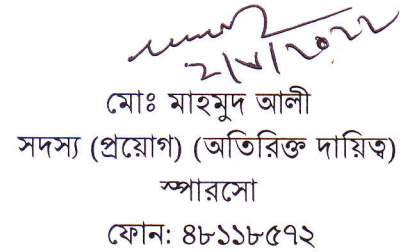 মোঃ মাহমুদ আলী
সদস্য (প্রয়োগ) (অতিরিক্ত দায়িত্ব)
স্পারসো
ফোন: ৪৮১১৮৫৭২